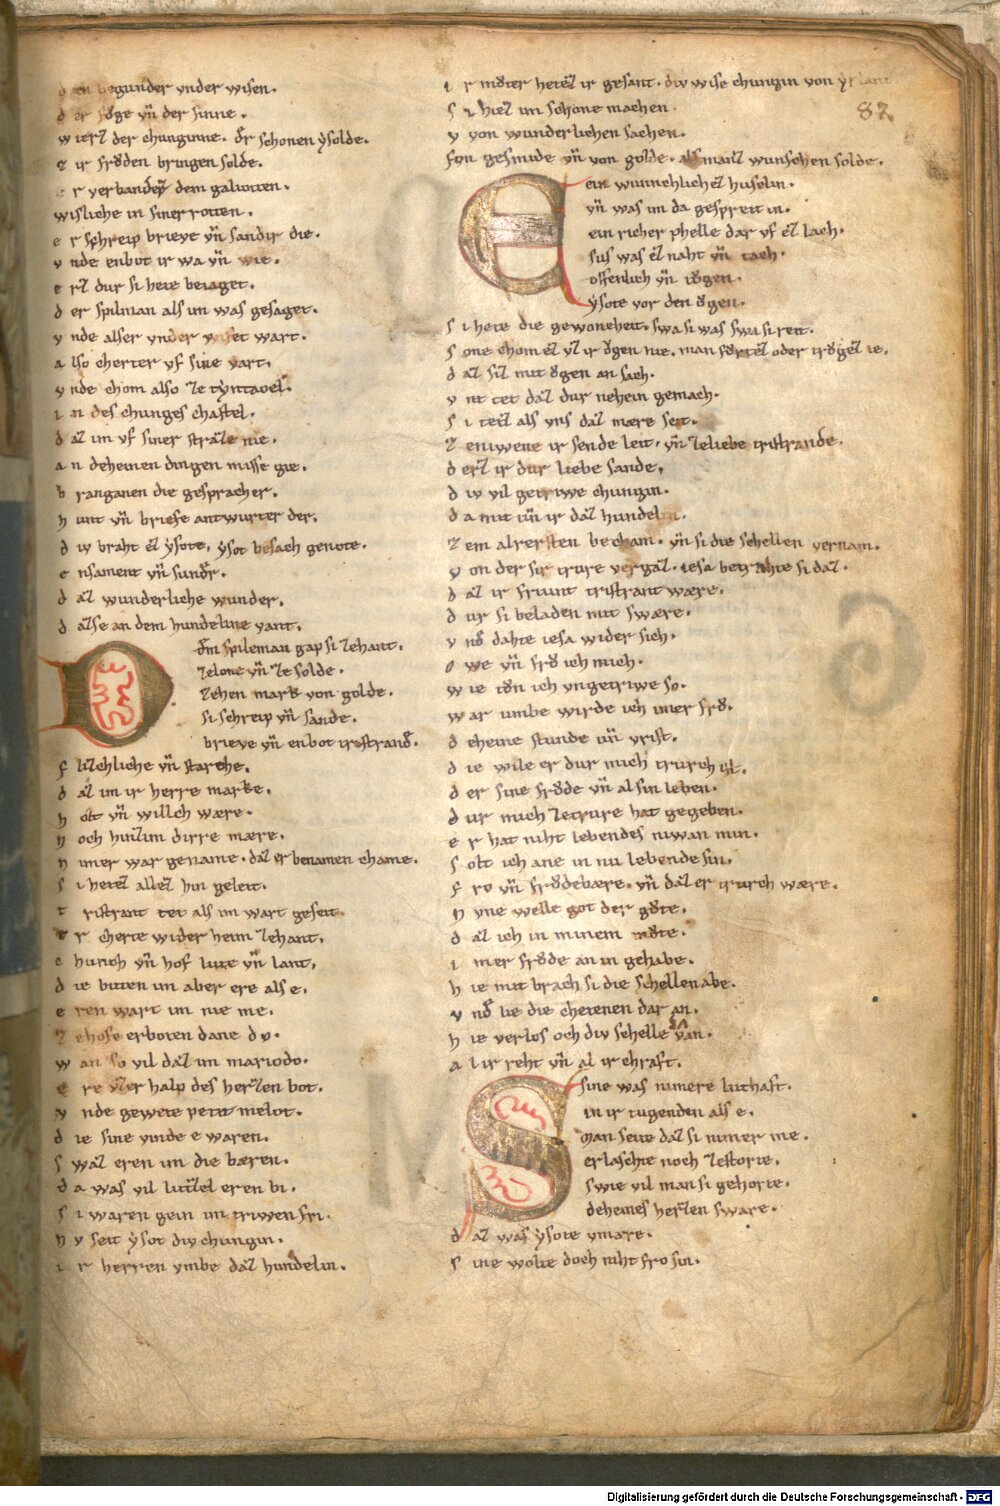 den begunder vnder wisen.
der fůge vn̄ der sinne.
wierz der chunginne. d̄r schonen ẏsolde.
z ir frŏden bringen solde.
er verbandez dem galiotten.
wisliche in siner rotten.
er schreip brieve vn̄ sandir die.
vnde enbot ir wa vn̄ wie.
erz dur si hete beiaget.
der spilman als im was gesaget.
vnde alser vnder wiset wart.
also cherter vf sine vart.
vnde chom also ze tẏntaoel.
in des chunges chastel.
daz im vf siner straze nie.
an deheinen dingen misse gie.
branganen die gesprach er.
hunt vn̄ briefe antwurter der.
div braht ez ẏsote. ẏsot besach genote.
ensament vn̄ sund̄r.
daz wunderliche wunder.
dazse an dem hundeline vant.
Dem spileman gap si zehant.
zelone vn̄ ze solde.
zehen mark von golde.
si schreip vn̄ sande.
brieve vn̄ enbot tristrand̄.
flizchliche vn̄ starche.
daz im ir herre marke.
holt vn̄ willch wære.
noch hinzim dirre mære.
nimer war gename. daz er benamen chame.
si hetez allez hin geleit.
tristrant tet als im wart geseit.
er cherte wider heim zehant.
chunich vn̄ hof lute vn̄ lant.
die butten im aber ere als e.
eren wart im nie me.
zehofe erboten dane dv.
wan so vil daz im mariodo.
ere vzer halp des herzen bot.
vnde gewete petit melot.
die sine vinde e waren.
swaz eren im die bæren.
da was vil lutzel eren bi.
si waren gein im triwen fri.
nv seit ẏsot div chungin.
ir herren vmbe daz hundelin.
ir můter hetez ir gesant. div wise chungin von ẏrlant
si hiez im schone machen
v von wunderlichen sachen.
von gesmide vn̄ von golde. als manz wunschen solde.
87.
Ein wunnehlichez huselin.
vn̄ was im da gespreit in.
ein richer phelle dar vf ez lach.
sus was ez naht vn̄ tach.
offenlich vn̄ tŏgen.
ẏsote vor den ŏgen.
si hete die gewoneheit. swa si was swa si reit.
sone chom ez vz ir ŏgen nie. man fůrtez oder trůgez ie.
daz siz mit ŏgen an sach.
vnt tet daz dur nehein gemach.
si tetz als vns daz mære seit.
zeniwene ir sende leit. vn̄ zeliebe tristrande.
derz ir dur liebe sande.
div vil getriwe chungin.
da mit vn̄ ir daz hundelin.
zem alrersten becham. vn̄ si die schellen vernam.
von der sir trure vergaz. iesa betrahte si daz.
daz ir friunt tristrant wære.
dur si beladen mit swære.
vnd̄ dahte iesa wider sich.
owe vn̄ frŏ ich mich.
wie tůn ich vngetriwe so.
war umbe wirde ich imer frŏ.
deheine stunde vn̄ vrist.
die wile er dur mich trurch ist.
der sine frŏde vn̄ al sin leben.
dur mich zetrure hat gegeben.
er hat niht lebendes niwan min.
solt ich ane in nu lebende sin.
fro vn̄ frŏdebære. vn̄ daz er trurch wære.
nvne welle got der gůte.
daz ich in minem můte.
imer frŏde an in gehabe.
hie mit brach si die schellen abe.
vnd̄ lie die chetenen dar an.
hie verlos och div schelle van.
al ir reht vn̄ al ir chraft.
Sine was nimere luthaft.
in ir tugenden als e.
man seite daz si nimer me.
erlaschte noch zestorte.
swie vil man si gehorte.
deheines herzen sware.
daz was ẏsote vmare.
sine wolte doch niht fro sin.
Digitalisierung gefördert durch die Deutsche Forschungsgemeinschaft - DFG